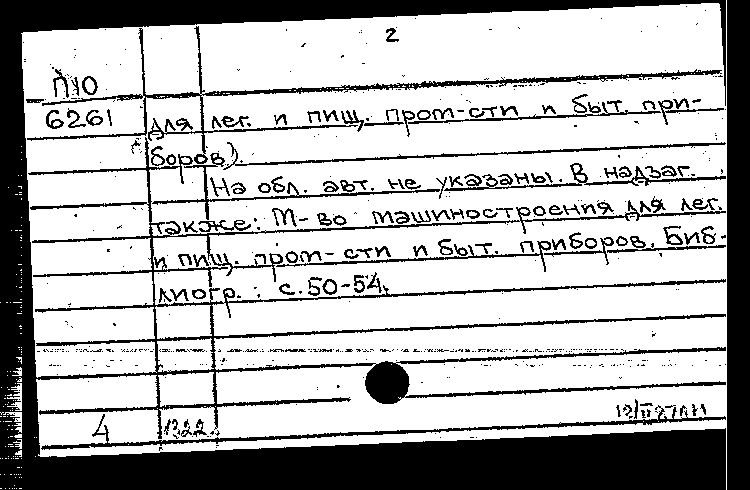 2
П10
6261
для лег. и пищ. пром-сти и быт. при-
боров).
На обл. авт. не указаны. В надзаг.
также: М-во машиностроения для лег.
и пищ. пром-сти и быт. приборов. Биб-
лиогр.: с.50-54.
4
1322